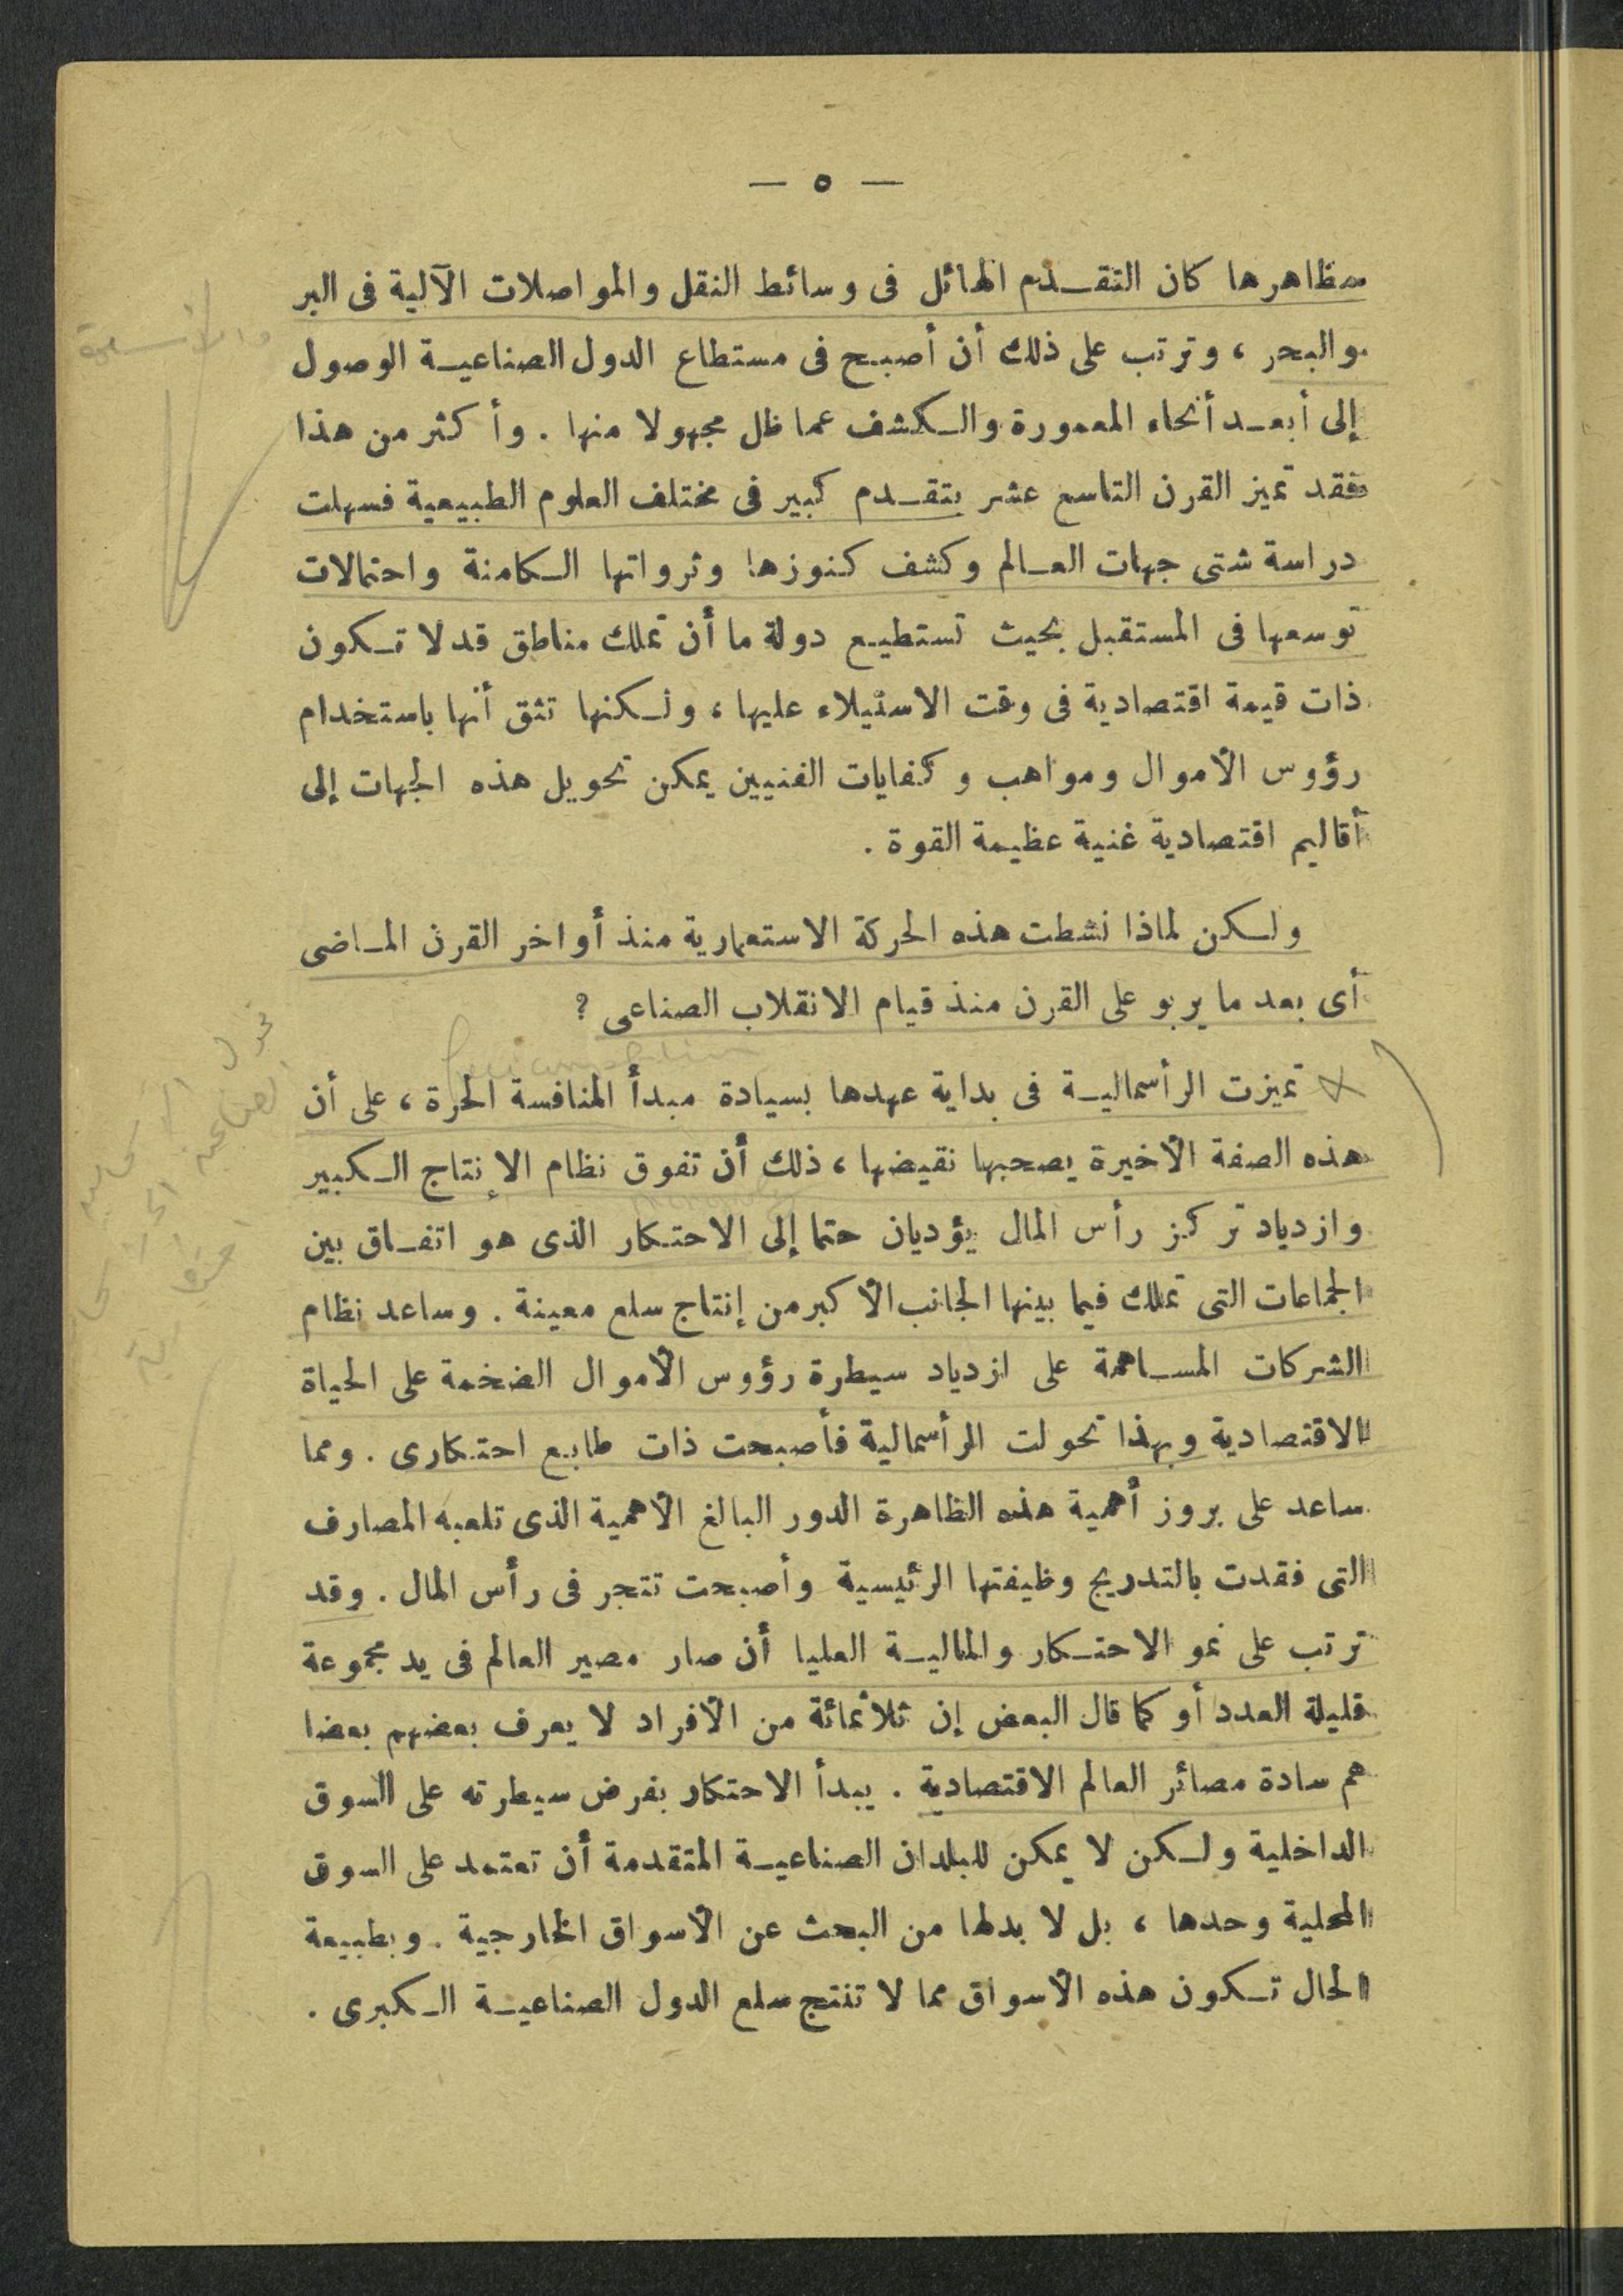 — ٥ —
مظاهرها كان التقدم الهائل فى وسائط النقل والمواصلات الآلية فى البر
والبحر ، وترتب على ذلك أن أصبح فى مستطاع الدول الصناعية الوصول
إلى أبعد أنحاء المعمورة والكشف عما ظل مجهولا منها . وأكثر من هذا
فقد تميز القرن التاسع عشر بتقدم كبير فى مختلف العلوم الطبيعية فسهلت
دراسة شتى جهات العالم وكشف كنوزها وثرواتها الكامنة واحتمالات
توسعها فى المستقبل بحيث تستطيع دولة ما أن تملك مناطق قد لا تكون
ذات قيمة اقتصادية فى وقت الاستيلاء عليها ، ولكنها تثق أنها باستخدام
رؤوس الأموال ومواهب وكفايات الفنيين يمكن تحويل هذه الجهات إلى
أقاليم اقتصادية غنية عظيمة القوة .
ولكن لماذا نشطت هذه الحركة الاستعمارية منذ أواخر القرن الماضى
أى بعد ما يربو على القرن منذ قيام الانقلاب الصناعى ؟
تميزت الرأسمالية فى بداية عهدها بسيادة مبدأ المنافسة الحرة ، على أن
هذه الصفة الأخيرة يصحبها نقيضها ، ذلك أن تفوق نظام الإنتاج الكبير
وازدياد تركز رأس المال يؤديان حتما إلى الاحتكار الذى هو اتفاق بين
الجماعات التى تملك فيما بينها الجانب الأكبر من إنتاج سلع معينة . وساعد نظام
الشركات المساهمة على ازدياد سيطرة رؤوس الأموال الضخمة على الحياة
الاقتصادية وبهذا تحولت الرأسمالية فأصبحت ذات طابع احتكارى . ومما
ساعد على بروز أهمية هذه الظاهرة الدور البالغ الأهمية الذى تلعبه المصارف
التى فقدت بالتدريج وظيفتها الرئيسية وأصبحت تتجر فى رأس المال . وقد
ترتب على نمو الاحتكار والمالية العليا أن صار مصير العالم فى يد مجموعة
قليلة العدد أو كما قال البعض إن ثلاثمائة من الأفراد لا يعرف بعضهم بعضا
هم سادة مصائر العالم الاقتصادية . يبدأ الاحتكار بفرض سيطرته على السوق
الداخلية ولكن لا يمكن للبلدان الصناعية المتقدمة أن تعتمد على السوق
المحلية وحدها ، بل لا بد لها من البحث عن الأسواق الخارجية . وبطبيعة
الحال تكون هذه الأسواق مما لا تنتج سلع الدول الصناعية الكبرى .